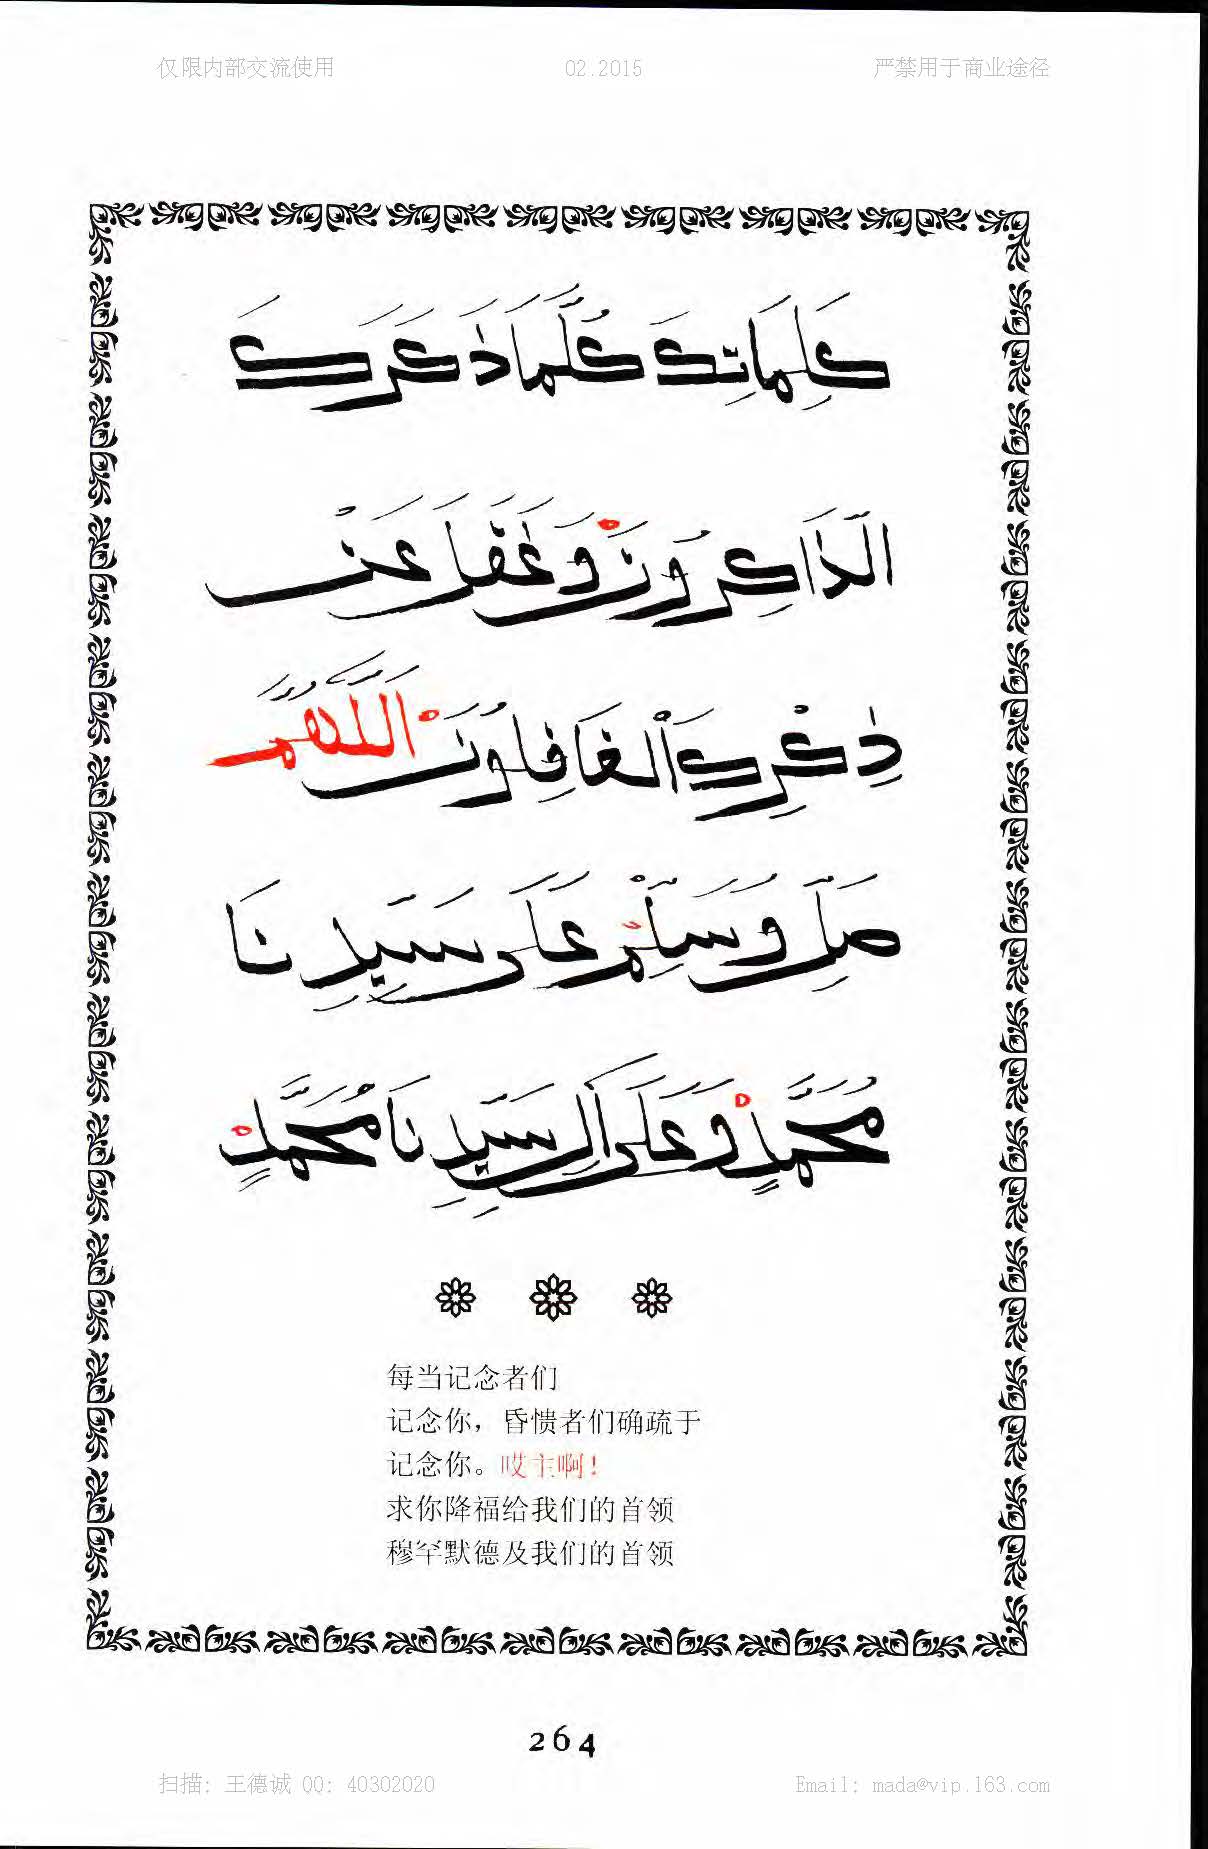 仅限内部交流使用 02.2015 严禁用于商业途径
كَلِمَاتِكَ كُلَّمَا ذَكَرَكَ
الذَّاكِرُونَ وَغَفَلَ عَنْ
ذِكْرِكَ الْغَافِلُونَ اَللَّهُمَّ
صَلِّ وَسَلِّمْ عَلَى سَيِّدِنَا
مُحَمَّدٍ وَعَلَى آلِ سَيِّدِنَا مُحَمَّدٍ
每当记念者们
记念你，昏愦者们确疏于
记念你。哎主啊！
求你降福给我们的首领
穆罕默德及我们的首领
264
扫描: 王德诚 QQ: 40302020 Email: mada@vip.163.com